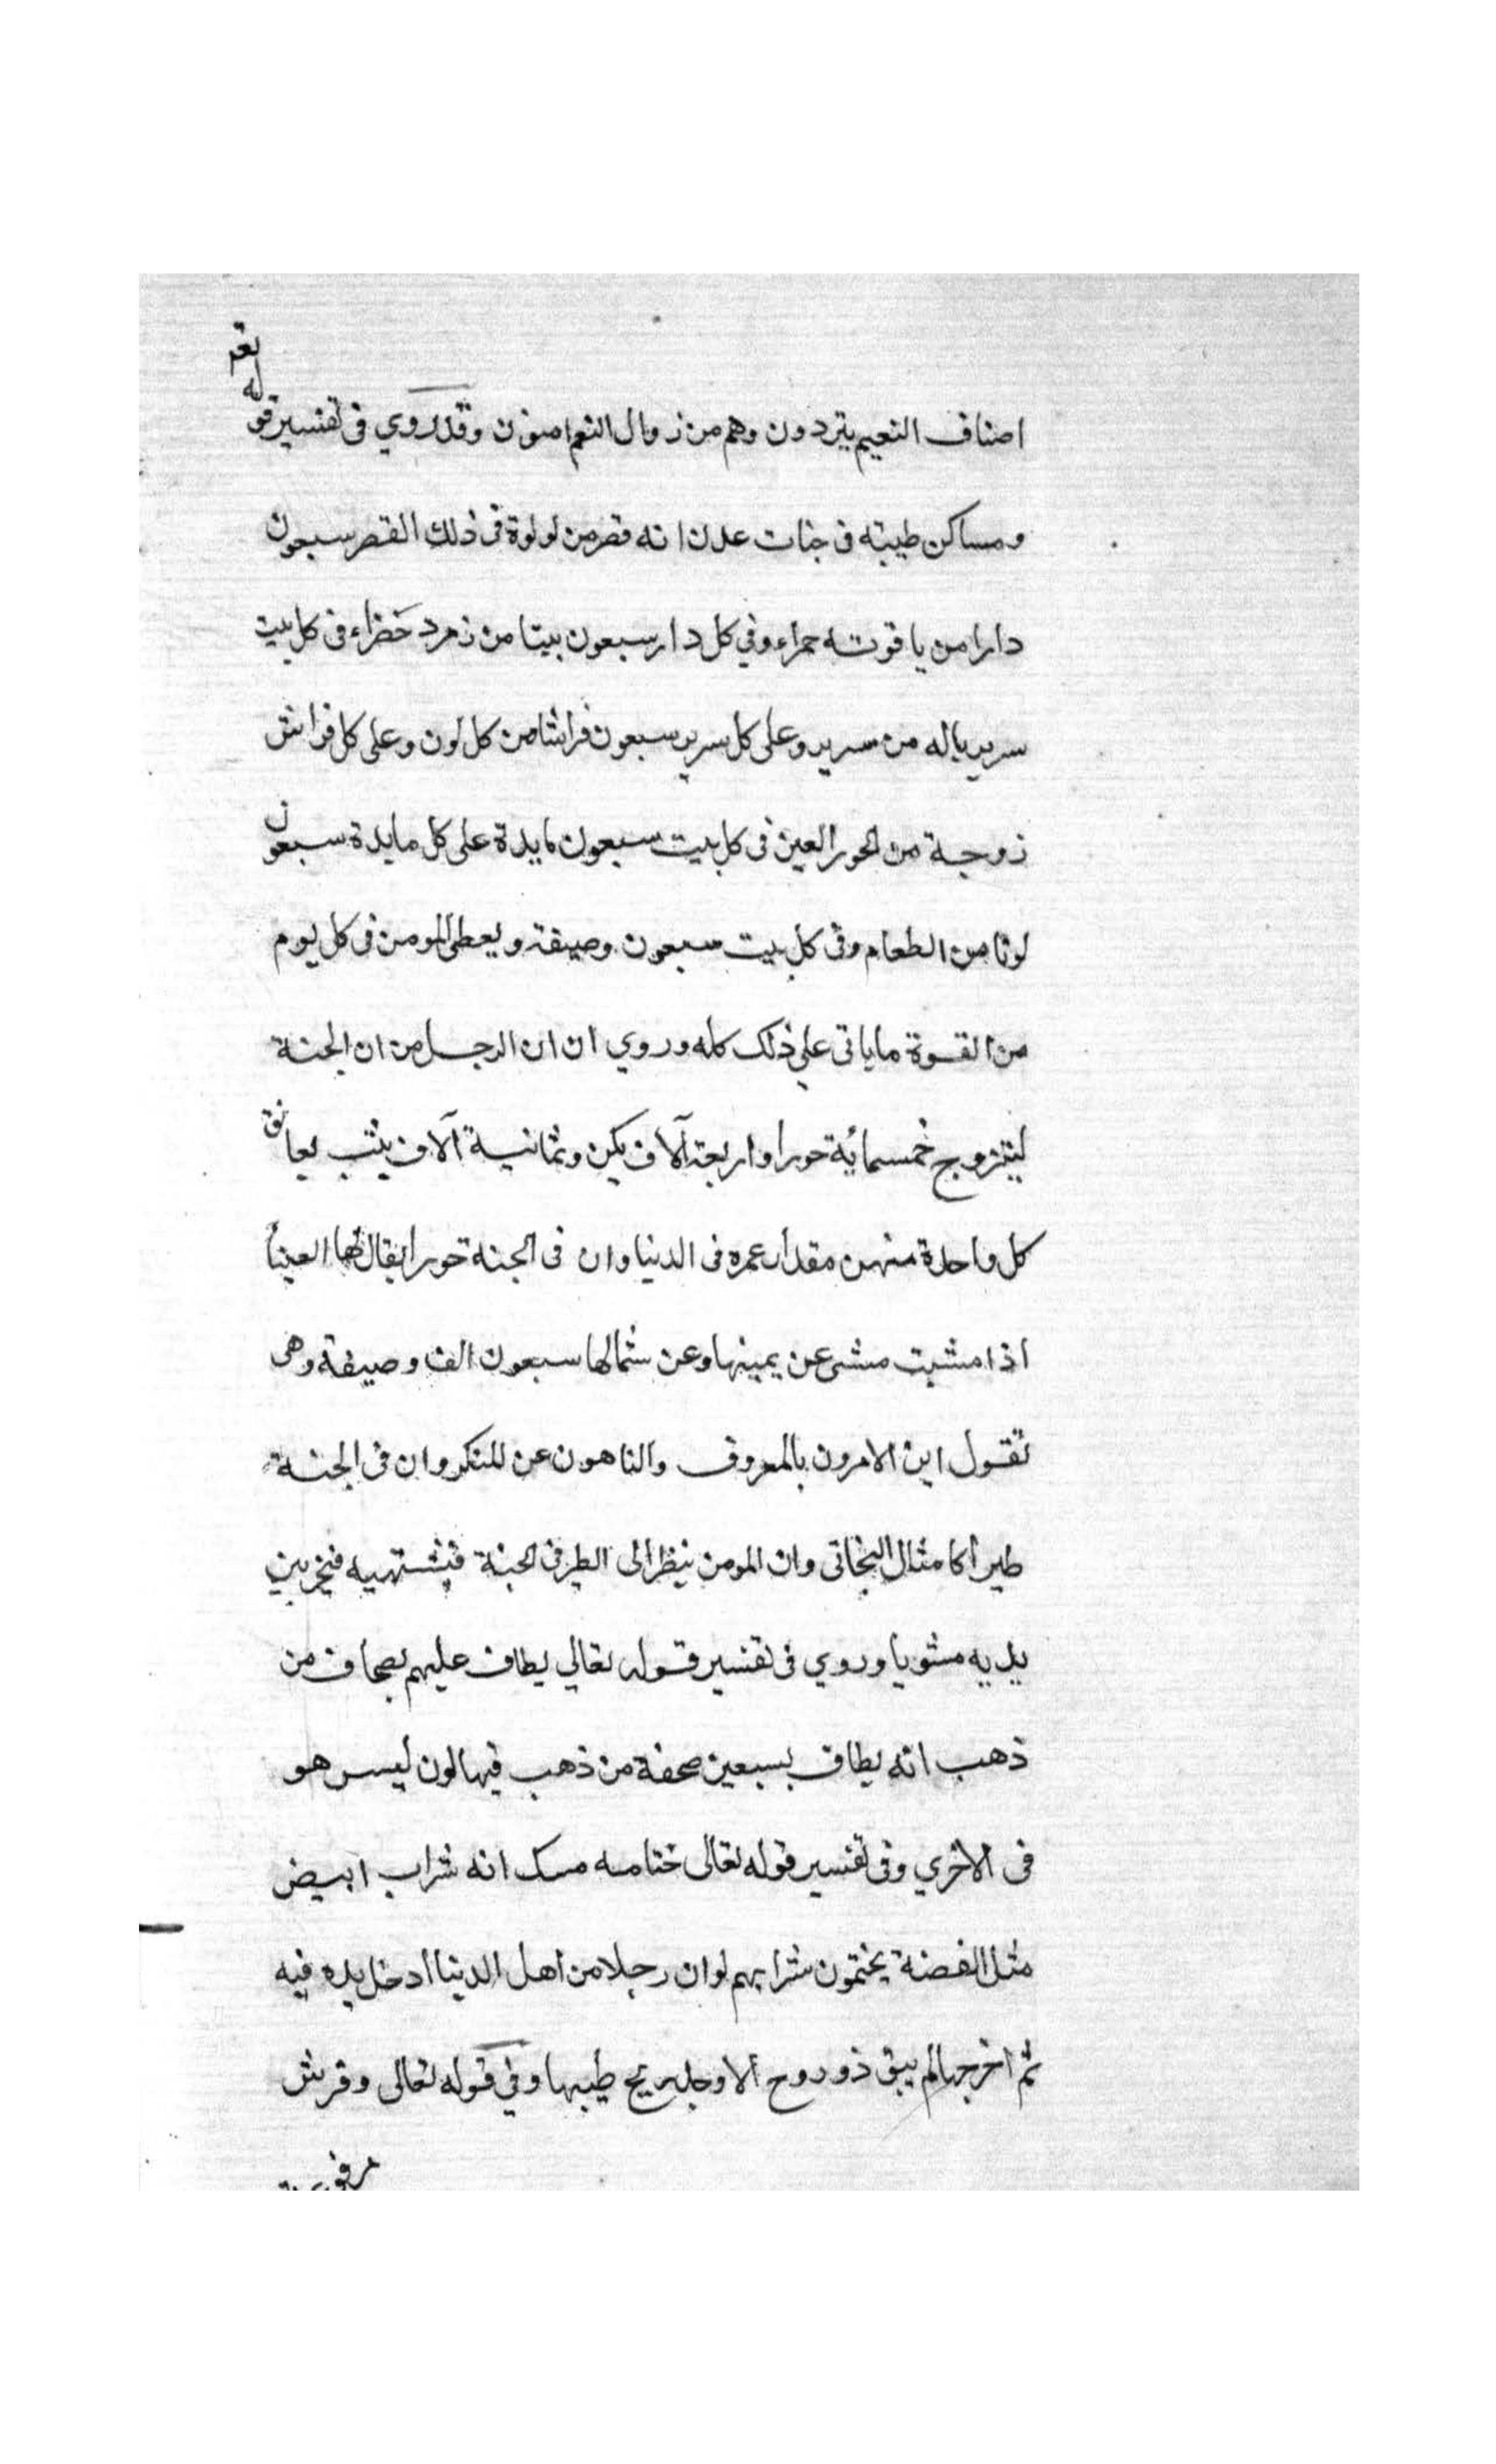 اصناف النعيم يترددون وهم من زوال النعم امنون وقد روي فى تفسير قوله تعم
ومساكن طيبته فى جنات عدن انه قصر من لولوة فى ذلك القصر سبعون
دارا من ياقوته حمراء وفي كل دار سبعون بيتا من زمرد خضراء فى كل بيت
سرير ياله من سرير وعلى كل سرير سبعون فراشا من كل لون وعلى كل فراش
زوجة من الحور العين فى كل بيت سبعون مايدة على كل مايدة سبعون
لونا من الطعام وفى كل بيت سبعون وصيفة ويعطى المومن فى كل يوم
من القوة ماياتى علي ذلك كله وروي ان ان الرجل من ان الجنة
ليتزوج خمسمائة حورا واربعة آلاف بكن وثمانية آلاف يثب يعانق
كل واحدة منهن مقدار عمره فى الدنيا وان فى الجنة حورا يقال لها العينا
اذا مشيت مشى عن يمينها وعن شمالها سبعون الف وصيفة وهى
تقول اين الامرون بالمعروف والناهون عن المنكر وان فى الجنة
طيرا كامثال البخاتى وان المومن ينظر الى الطير فى الجنة فيشتهيه فيخر بين
يديه مشويا وروي فى تفسير قوله تعالي يطاف عليهم بصحاف من
ذهب انه يطاف بسبعين صحفة من ذهب فيها لون ليس هو
فى الاخري وفى تفسير قوله تعالى ختامه مسك انه شراب ابيض
مثل الفضة يختمون شرابهم لو ان رجلا من اهل الدنيا ادخل يده فيه
ثم اخرجها لم يبق ذو روح الا وجد ريح طيبها وفي قوله تعالى وفرش